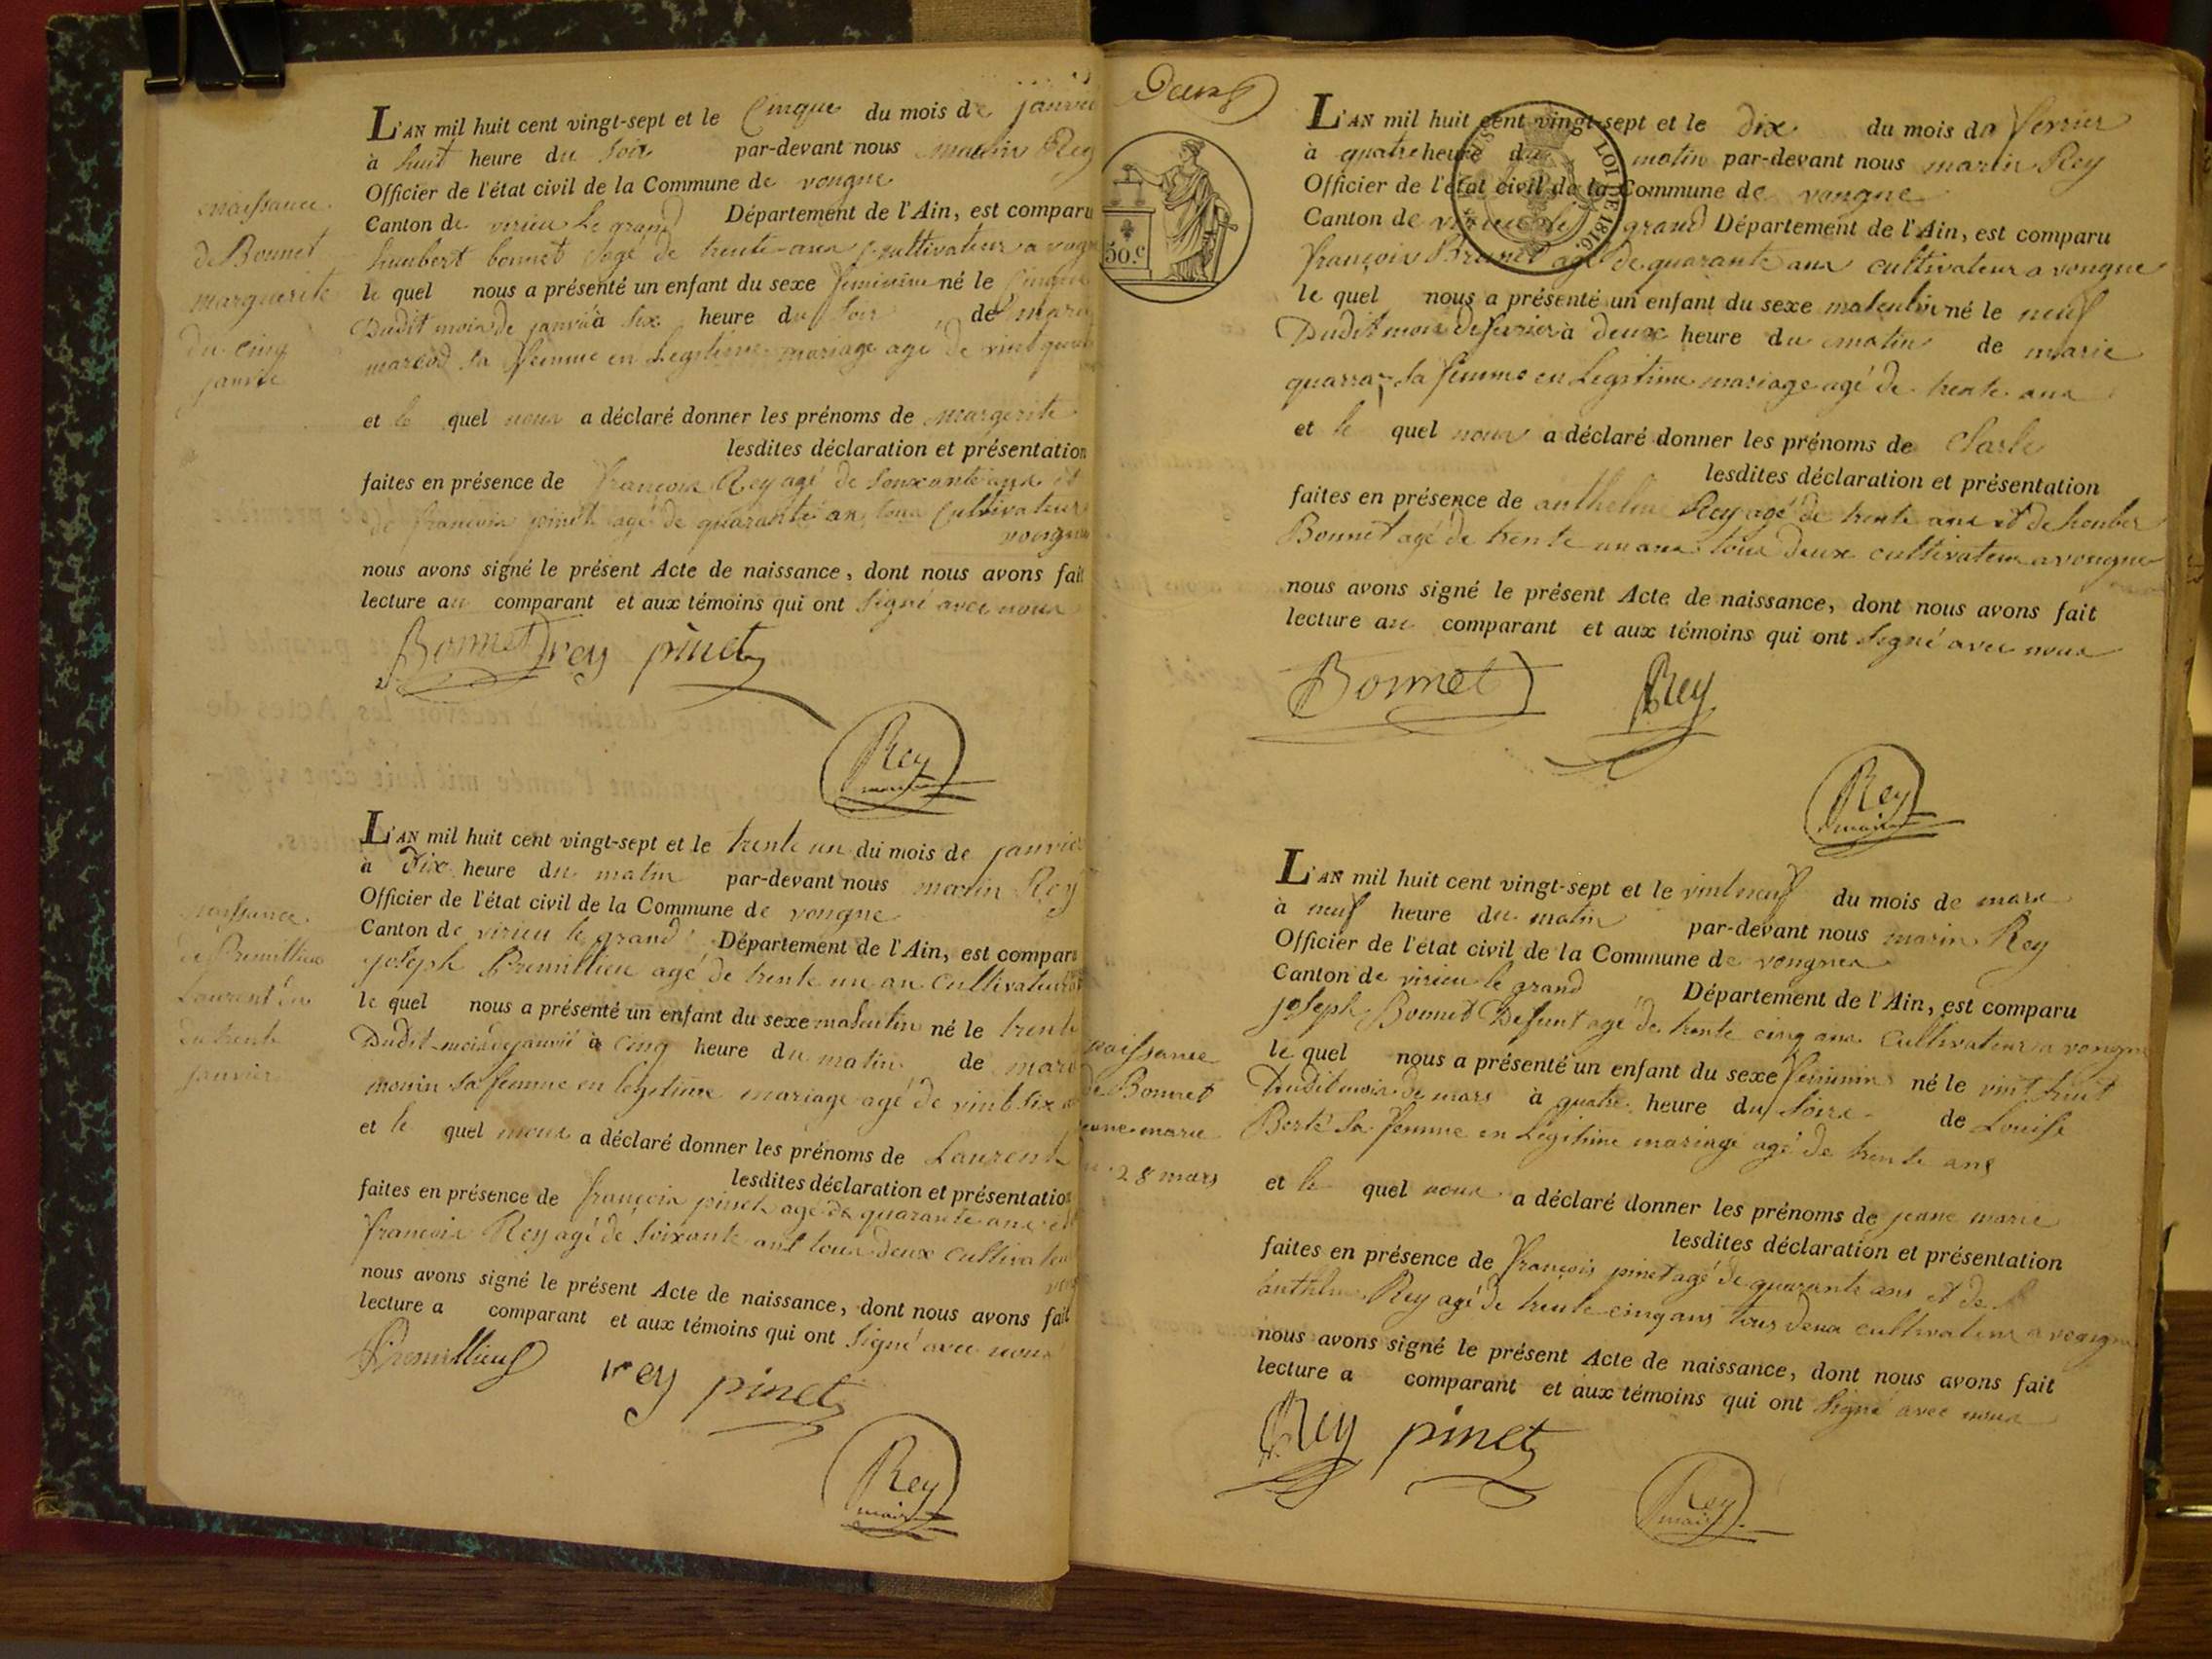 L'AN mil huit cent vingt-sept et le Cinque du mois de janvie
à huit heure du soir par-devant nous marin Rey
Officier de l'état civil de la Commune de vongne
Canton de virieu le grand Département de l'Ain, est comparu
humbert bonnet agé de trente-ans cultivateur a vogne
le quel nous a présenté un enfant du sexe feminin né le cinque
Dudit mois de janvié à six heure du soir de marie
marcod sa femme en Legitime mariage agé de vint
et le quel nous a déclaré donner les prénoms de margerite
lesdites déclaration et présentation
faites en présence de françois Rey agé de soixante ans et
de françois pinet agé de quarante an tous Cultivateur
vongne
nous avons signé le présent Acte de naissance, dont nous avons fait
lecture au comparant et aux témoins qui ont signé avec nous
Bonnet rey pinet
Rey
maire
naissance
de Bonnet
marguerite
du cinq
janvie
L'AN mil huit cent vingt-sept et le trente un du mois de janvie
à Dix heure du matin par-devant nous marin Rey
Officier de l'état civil de la Commune de vongne
Canton de virieu le grand Département de l'Ain, est comparu
joseph Premillieu agé de trente un an Cultivateur
le quel nous a présenté un enfant du sexe masculin né le trente
Dudit mois de janvié à cinq heure du matin de marie
monin sa femme en legitime mariage agé de vint six
et le quel nous a déclaré donner les prénoms de Laurent
lesdites déclaration et présentation
faites en présence de françois pinet agé de quarante ans et
françois Rey agé de soixante ans tous deux cultivateu
nous avons signé le présent Acte de naissance, dont nous avons fait
lecture a comparant et aux témoins qui ont signé avec nous
Premillieu rey pinet
Rey
maire
naissance
de Premillieu
Laurent
du trente
janvier
Deux
50.c
LOI DE 1816.
L'AN mil huit cent vingt-sept et le dix du mois de fevrier
à quatre heure du matin par-devant nous marin Rey
Officier de l'état civil de la Commune de vongne
Canton de virieu le grand Département de l'Ain, est comparu
françois Brunet agé de quarante ans cultivateur a vongne
le quel nous a présenté un enfant du sexe masculin né le neuf
Dudit mois de fevrier à deux heure du matin de marie
sa femme en Legitime mariage agé de trente ans
et le quel nous a déclaré donner les prénoms de Charle
lesdites déclaration et présentation
faites en présence de anthelme Rey agé de trente ans et de houber
Bonnet agé de trente un ans tous deux cultivateur a vongne
nous avons signé le présent Acte de naissance, dont nous avons fait
lecture au comparant et aux témoins qui ont signé avec nous
Bonnet Rey
Rey
maire
L'AN mil huit cent vingt-sept et le vint neuf du mois de mars
à neuf heure du matin par-devant nous marin Rey
Officier de l'état civil de la Commune de vongnes
Canton de virieu le grand Département de l'Ain, est comparu
joseph Bonnet Defunt agé de trente cinq ans Cultivateur a vongne
le quel nous a présenté un enfant du sexe feminin né le vint huit
Dudit mois de mars à quatre heure du soire de Louise
Berte sa femme en Legitime mariage agé de trente ans
et le quel nous a déclaré donner les prénoms de jeane marie
lesdites déclaration et présentation
faites en présence de françois pinet agé de quarante ans et de
anthelme Rey agé de trente cinq ans tous deux cultivateur a vongne
nous avons signé le présent Acte de naissance, dont nous avons fait
lecture a comparant et aux témoins qui ont signé avec nous
Rey pinet
Rey
maire
naissance
de Bonnet
jeane marie
28 mars